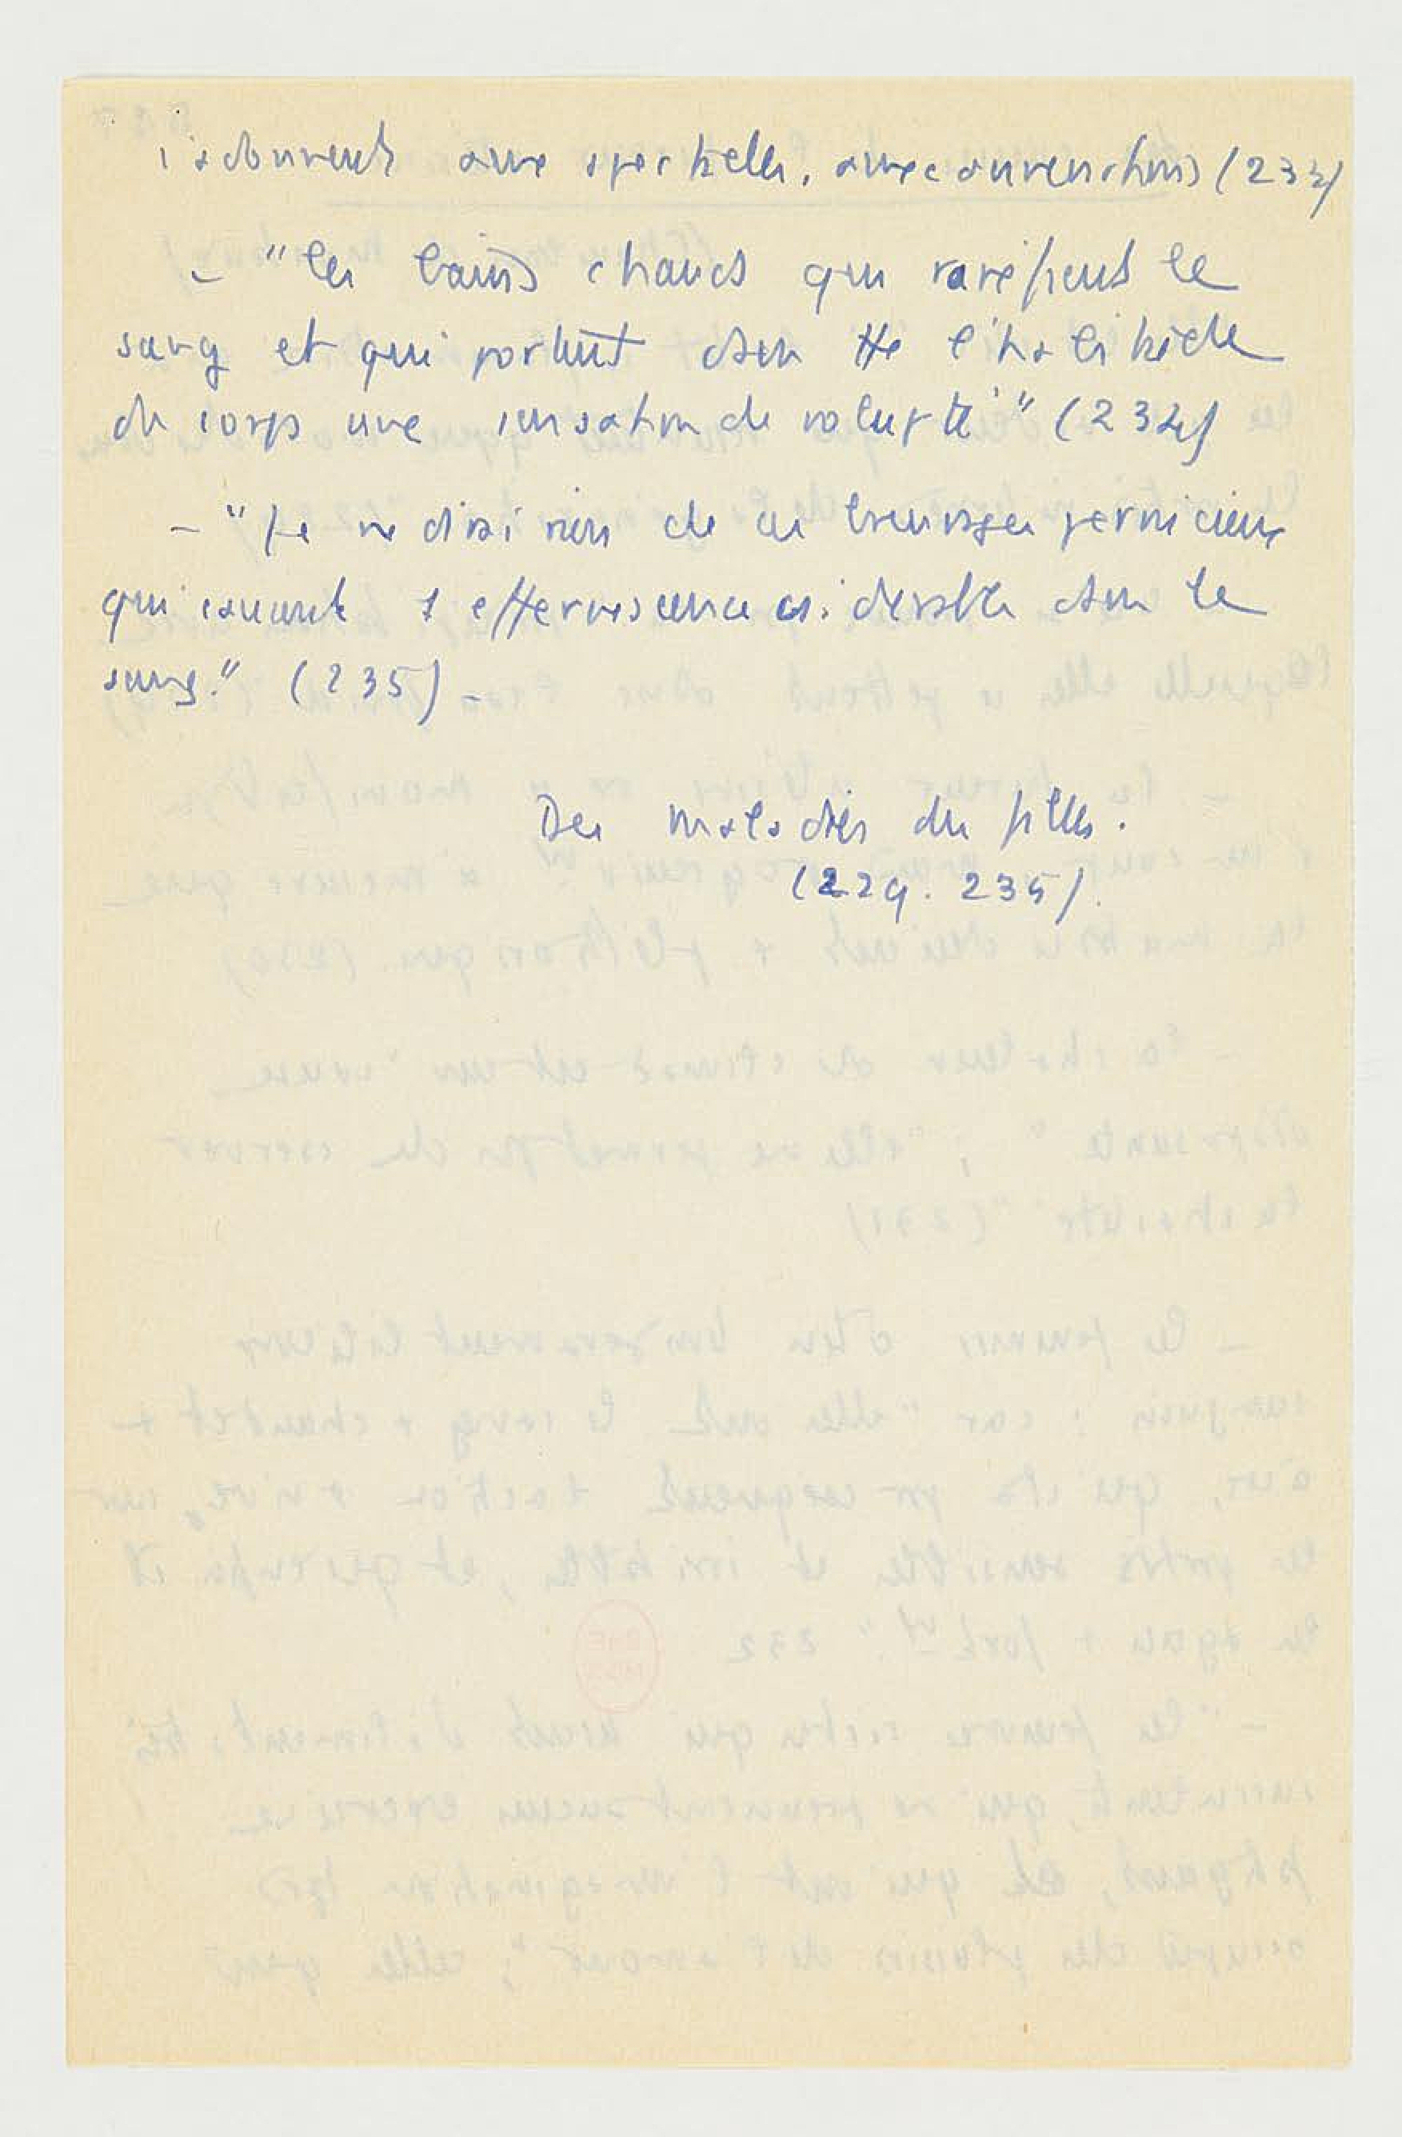 s'adonnent aux spectacles, aux conversations (233)
– "les bains chauds qui raréfient le
sang et qui portent dans tte l'habitude
du corps une sensation de volupté" (234)
– "Je ne dirai rien de ces breuvages pernicieux
qui excitent 1 effervescence csidérable dans le
sang." (235) –
Des maladies des filles.
(229. 235).